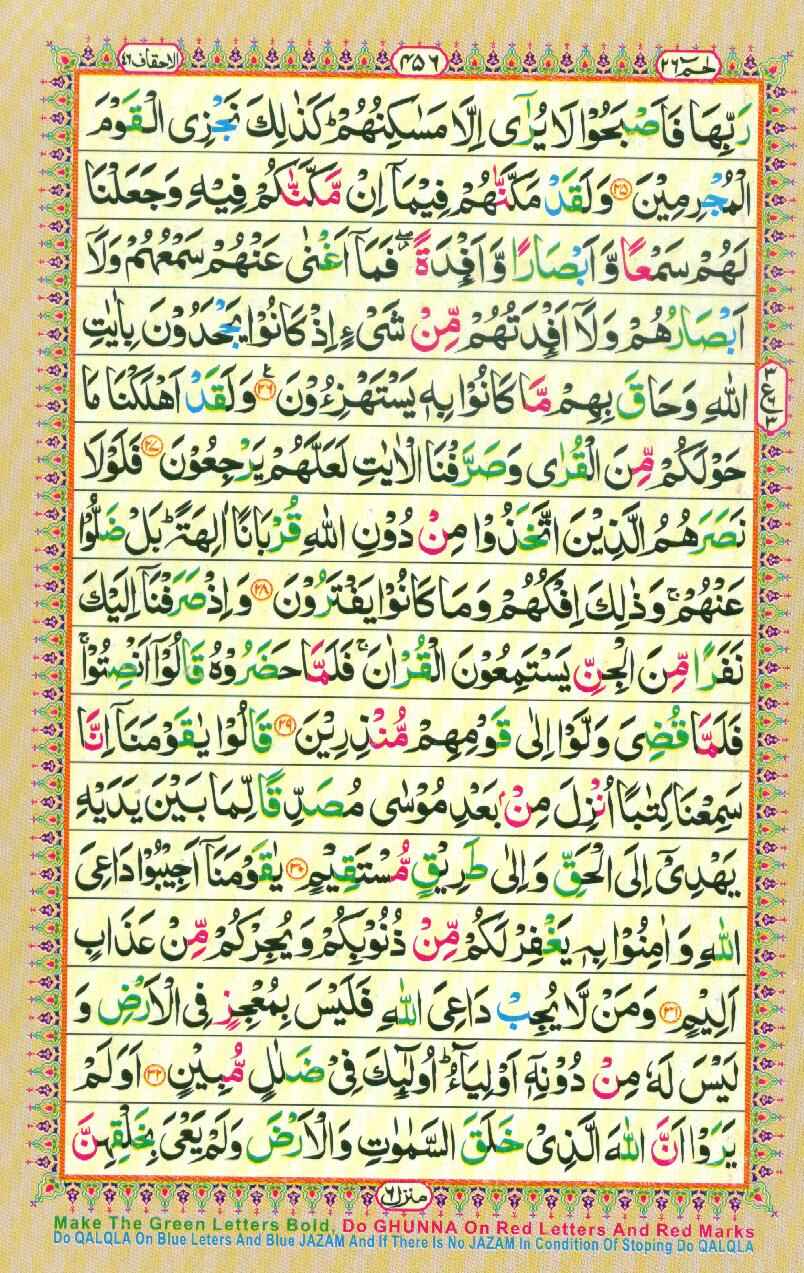 حٰمٓ ٢٦
٤٥٦
الاحقاف ٤٦
رَبِّهَا فَاَصْبَحُوْا لَا يُرٰٓى اِلَّا مَسٰكِنُهُمْ ؕ كَذٰلِكَ نَجْزِى الْقَوْمَ
الْمُجْرِمِيْنَ ﴿۲۵﴾ وَلَقَدْ مَكَّنّٰهُمْ فِيْمَاۤ اِنْ مَّكَّنّٰكُمْ فِيْهِ وَجَعَلْنَا
لَهُمْ سَمْعًا وَّ اَبْصَارًا وَّ اَفْـِٕدَةً ۖ فَمَاۤ اَغْنٰى عَنْهُمْ سَمْعُهُمْ وَلَاۤ
اَبْصَارُهُمْ وَلَاۤ اَفْـِٕدَتُهُمْ مِّنْ شَىْءٍ اِذْ كَانُوْا يَجْحَدُوْنَ بِاٰيٰتِ
اللّٰهِ وَحَاقَ بِهِمْ مَّا كَانُوْا بِهٖ يَسْتَهْزِءُوْنَ ﴿۲۶﴾ وَلَقَدْ اَهْلَكْنَا مَا
حَوْلَكُمْ مِّنَ الْقُرٰى وَصَرَّفْنَا الْاٰيٰتِ لَعَلَّهُمْ يَرْجِعُوْنَ ﴿۲۷﴾ فَلَوْلَا
نَصَرَهُمُ الَّذِيْنَ اتَّخَذُوْا مِنْ دُوْنِ اللّٰهِ قُرْبَانًا اٰلِهَةً ؕ بَلْ ضَلُّوْا
عَنْهُمْ ۚ وَذٰلِكَ اِفْكُهُمْ وَمَا كَانُوْا يَفْتَرُوْنَ ﴿۲۸﴾ وَاِذْ صَرَفْنَاۤ اِلَيْكَ
نَفَرًا مِّنَ الْجِنِّ يَسْتَمِعُوْنَ الْقُرْاٰنَ ۚ فَلَمَّا حَضَرُوْهُ قَالُوْۤا اَنْصِتُوْا ۚ
فَلَمَّا قُضِىَ وَلَّوْا اِلٰى قَوْمِهِمْ مُّنْذِرِيْنَ ﴿۲۹﴾ قَالُوْا يٰقَوْمَنَاۤ اِنَّا
سَمِعْنَا كِتٰبًا اُنْزِلَ مِنْۢ بَعْدِ مُوْسٰى مُصَدِّقًا لِّمَا بَيْنَ يَدَيْهِ
يَهْدِىْۤ اِلَى الْحَقِّ وَاِلٰى طَرِيْقٍ مُّسْتَقِيْمٍ ﴿۳۰﴾ يٰقَوْمَنَاۤ اَجِيْبُوْا دَاعِىَ
اللّٰهِ وَ اٰمِنُوْا بِهٖ يَغْفِرْ لَكُمْ مِّنْ ذُنُوْبِكُمْ وَيُجِرْكُمْ مِّنْ عَذَابٍ
اَلِيْمٍ ﴿۳۱﴾ وَمَنْ لَّا يُجِبْ دَاعِىَ اللّٰهِ فَلَيْسَ بِمُعْجِزٍ فِى الْاَرْضِ وَ
لَيْسَ لَهٗ مِنْ دُوْنِهٖۤ اَوْلِيَآءُ ؕ اُولٰٓئِكَ فِىْ ضَلٰلٍ مُّبِيْنٍ ﴿۳۲﴾ اَوَلَمْ
يَرَوْا اَنَّ اللّٰهَ الَّذِىْ خَلَقَ السَّمٰوٰتِ وَالْاَرْضَ وَلَمْ يَعْىَ بِخَلْقِهِنَّ
٣
ع
٣
منزل ٦
Make The Green Letters Bold, Do GHUNNA On Red Letters And Red Marks
Do QALQLA On Blue Leters And Blue JAZAM And If There Is No JAZAM In Condition Of Stoping Do QALQLA